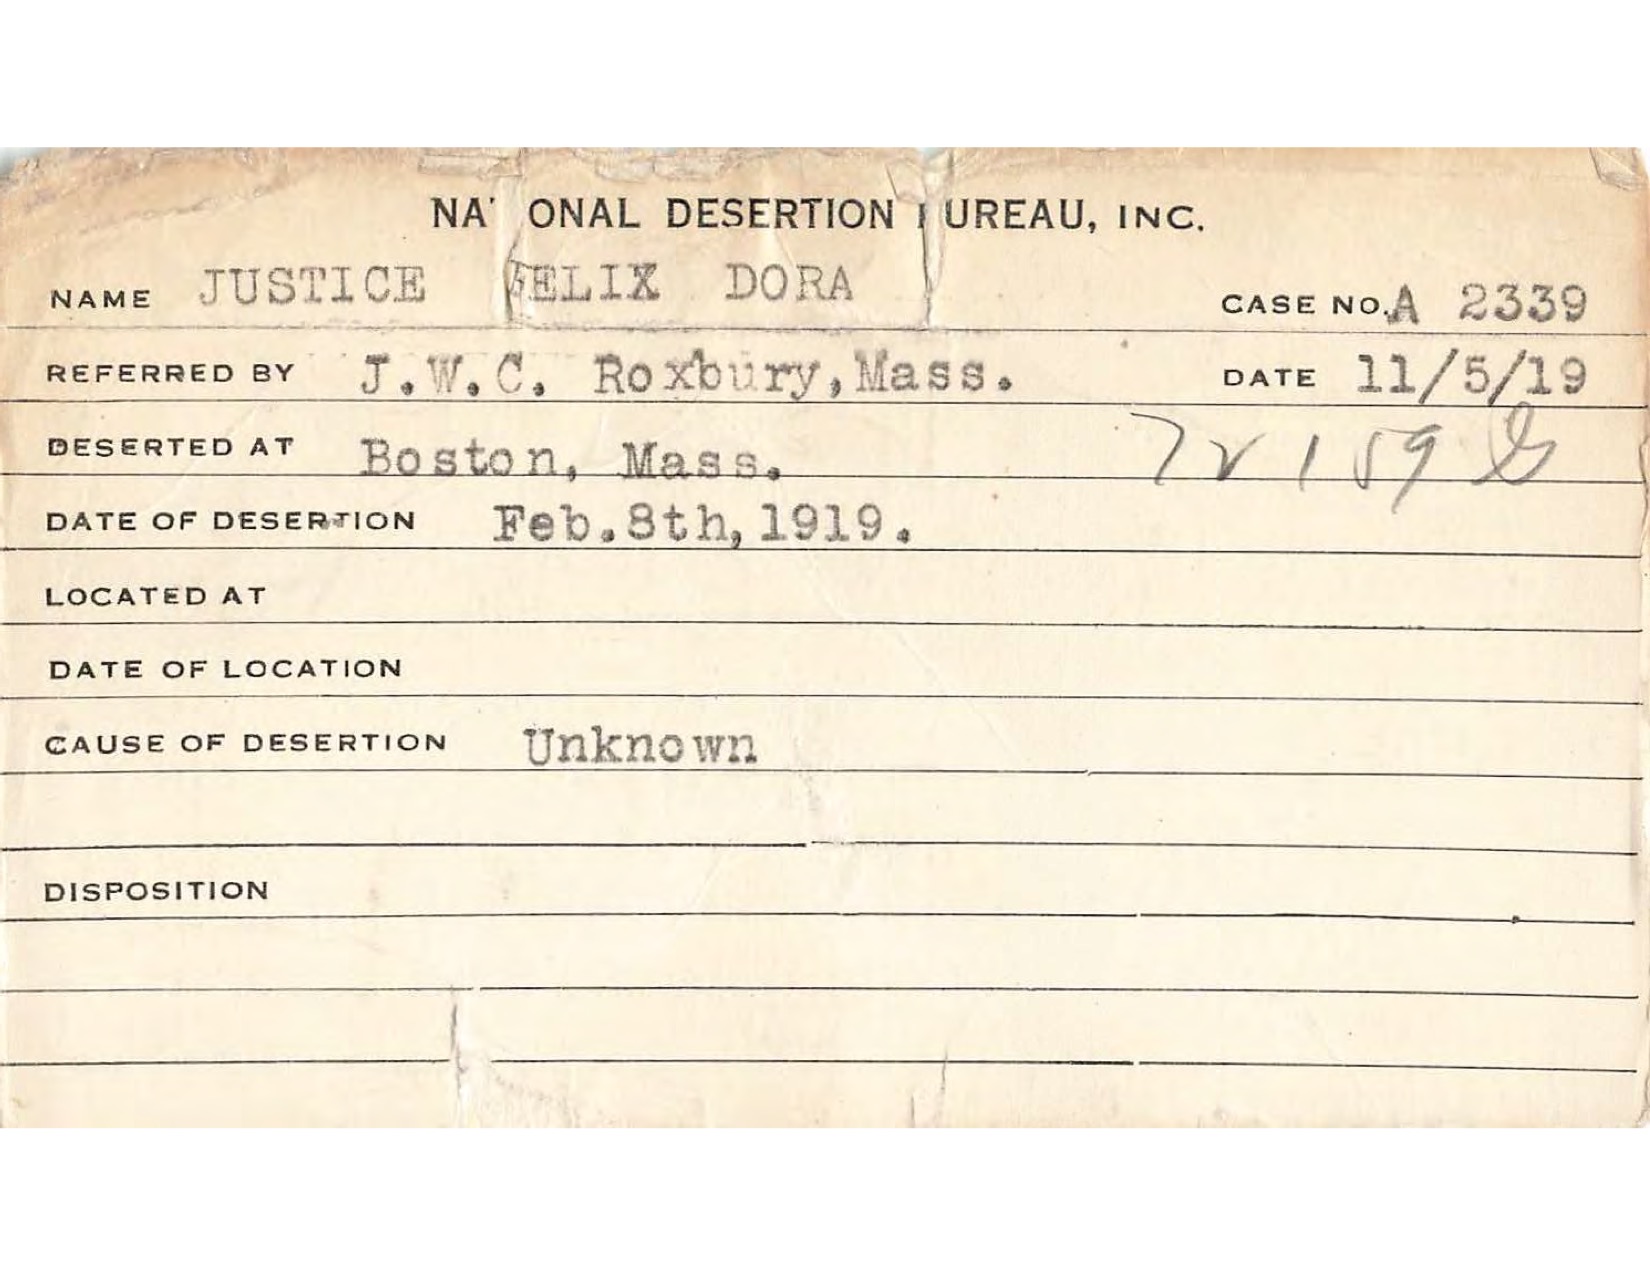 NATIONAL DESERTION BUREAU, INC.
NAME JUSTICE FELIX DORA CASE NO. A 2339
REFERRED BY J.W.C. Roxbury, Mass. DATE 11/5/19
DESERTED AT Boston, Mass.
DATE OF DESERTION Feb. 8th, 1919.
LOCATED AT
DATE OF LOCATION
CAUSE OF DESERTION Unknown
DISPOSITION